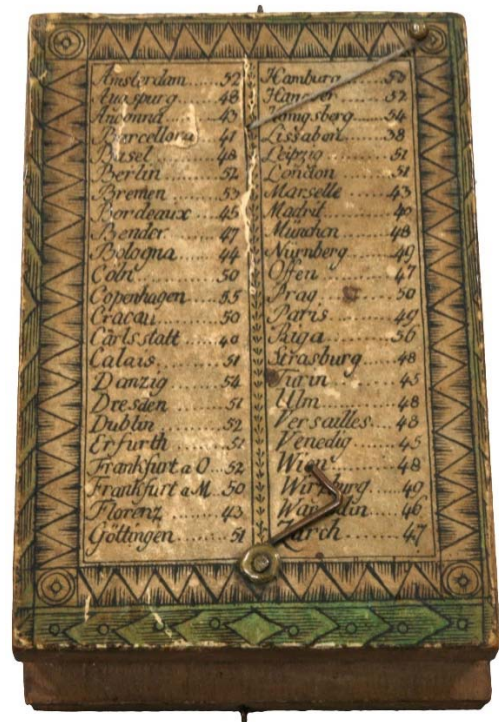 Amsterdam 52
Augspurg 48
Anconna 43
Barcellona 41
Basel 48
Berlin 52
Bremen 53
Bordeaux 45
Bender 47
Bologna 44
Cöln 50
Copenhagen 55
Cracau 50
Carlsstatt 40
Calais 51
Danzig 54
Dresden 51
Dublin 52
Erfurth 51
Frankfurt a O 52
Frankfurt a M 50
Florenz 43
Göttingen 51
Hamburg 50
Hanover 52
Königsberg 54
Lissabon 38
Leipzig 51
London 51
Marselle 43
Madrit 40
Munchen 48
Nurnberg 49
Offen 47
Prag 50
Paris 49
Riga 56
Strasburg 48
Turin 45
Ulm 48
Versailles 48
Venedig 45
Wien 48
Wirzburg 49
46
Zurch 47